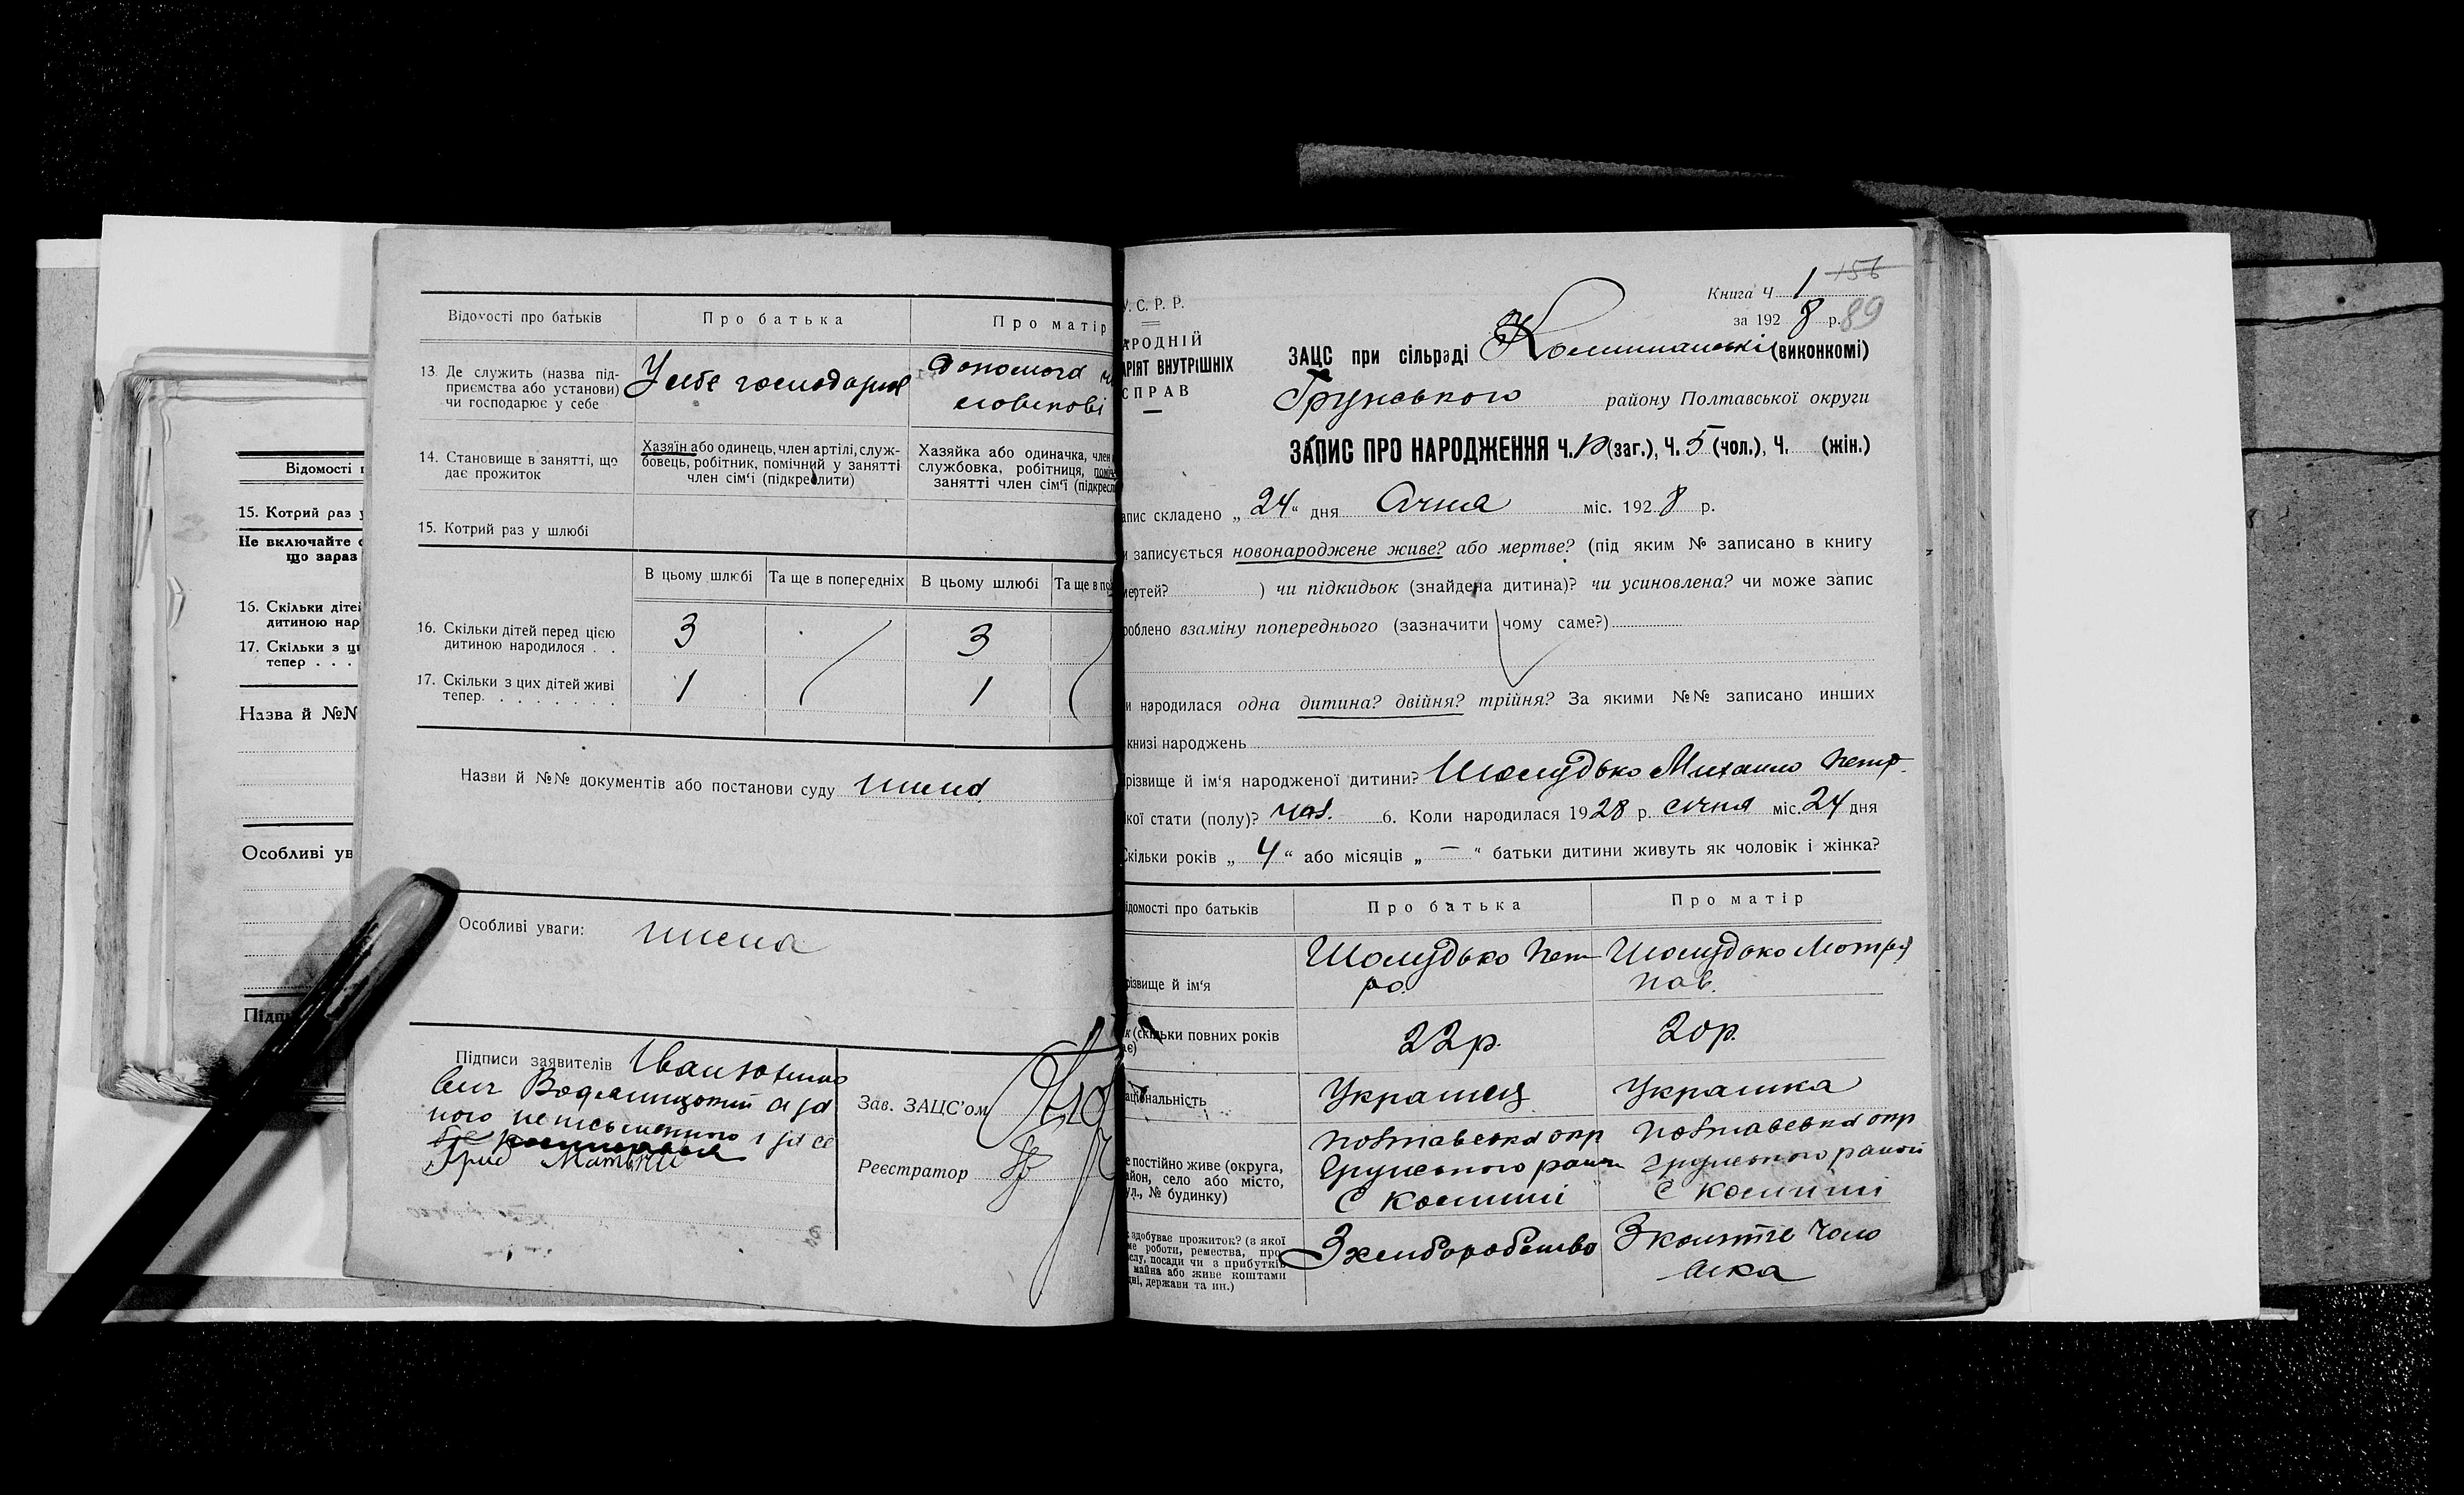 Відомості п
15. Котрий раз у
Не включайте
що зараз
16. Скільки дітей
дитиною нар
17. Скільки з ц
тепер . . .
Назва й №№
Особливі ув
Підпи
Відомості про батьків
Про батька
Про матір
13. Де служить (назва під-
приємства або установи)
чи господарює у себе
У себе господарює
Допомога
чоловікові
14. Становище в занятті, що
дає прожиток
Хазяїн або одинець, член артілі, служ-
бовець, робітник, помічний у занятті
член сім'ї (підкреслити)
Хазяйка або одиначка, член
службовка, робітниця, поміч
занятті член сім'ї (підкресл
15. Котрий раз у шлюбі
В цьому шлюбі
Та ще в попередніх
В цьому шлюбі
Та ще в по
16. Скільки дітей перед цією
дитиною народилося . .
3
3
17. Скільки з цих дітей живі
тепер. . . . . . . .
1
1
Назви й №№ документів або постанови суду
Особливі уваги:
Підписи заявителів Іван
неписьменного і за се
Зав. ЗАЦС'ом
Реєстратор
У.С.Р.Р.
АРОДНІЙ
АРІЯТ ВНУТРІШНІХ
СПРАВ
Книга Ч 1 156
за 1928 р. 89
ЗАЦС при сільраді (виконкомі)
Грунського району Полтавської округи
ЗАПИС ПРО НАРОДЖЕННЯ Ч. 10 (заг.), Ч. 5 (чол.), Ч. (жін.)
апис складено „24“ дня Січня міс. 1928 р.
и записується новонароджене живе? або мертве? (під яким № записано в книгу
мертей? ) чи підкидьок (знайдена дитина)? чи усиновлена? чи може запис
роблено взаміну попереднього (зазначити чому саме?)
и народилася одна дитина? двійня? трійня? За якими №№ записано инших
книзі народжень
різвище й ім'я народженої дитини? Шолудько Михайло Петр.
кої стати (полу)? чол. 6. Коли народилася 1928 р. січня міс. 24 дня
Скільки років „4“ або місяців „—“ батьки дитини живуть як чоловік і жінка?
ідомості про батьків
Про батька
Про матір
різвище й ім'я
Шолудько Пет
ро.
Шолудько Мотря
Пав.
к (скільки повних років
ає)
22 р.
20 р.
аціональність
Українец
Українка
е постійно живе (округа,
айон, село або місто,
ул., № будинку)
Полтавська окр
Грунського район
С
Полтавська окр
Грунського район
С
с здобуває прожиток? (з якої
ме роботи, ремества, про-
ислу, посади чи з прибутків
майна або живе коштами
дні, держави та ин.)
З хліборобства
З коштів чоло
віка